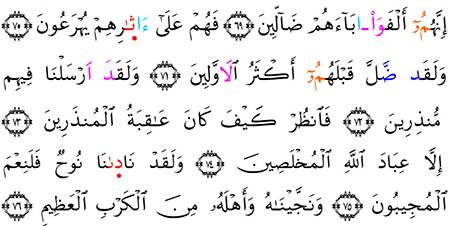 إِنَّهُمُۥٓ أَلْفَوَاْ ـ ابَآءَهُمْ ضَآلِّينَ ﴿٦٩﴾ فَهُمْ عَلَىٰٓ ءَاثٰ۪رِهِمْ يُهْرَعُونَ ﴿٧٠﴾
وَلَقَد ضَّلَّ قَبْلَهُمُۥٓ أَكْثَرُ اُ۬لَاوَّلِينَ ﴿٧١﴾ وَلَقَدَ اَرْسَلْنَا فِيهِم
مُّنذِرِينَ ﴿٧٢﴾ فَانظُرْ كَيْفَ كَانَ عَٰقِبَةُ اُ۬لْمُنذَرِينَ ﴿٧٣﴾
إِلَّا عِبَادَ اَ۬للَّهِ اِ۬لْمُخْلَصِينَ ﴿٧٤﴾ وَلَقَدْ نَادٜىٰنَا نُوحٌ فَلَنِعْمَ
اَ۬لْمُجِيبُونَ ﴿٧٥﴾ وَنَجَّيْنَٰهُ وَأَهْلَهُۥ مِنَ اَ۬لْكَرْبِ اِ۬لْعَظِيمِ ﴿٧٦﴾